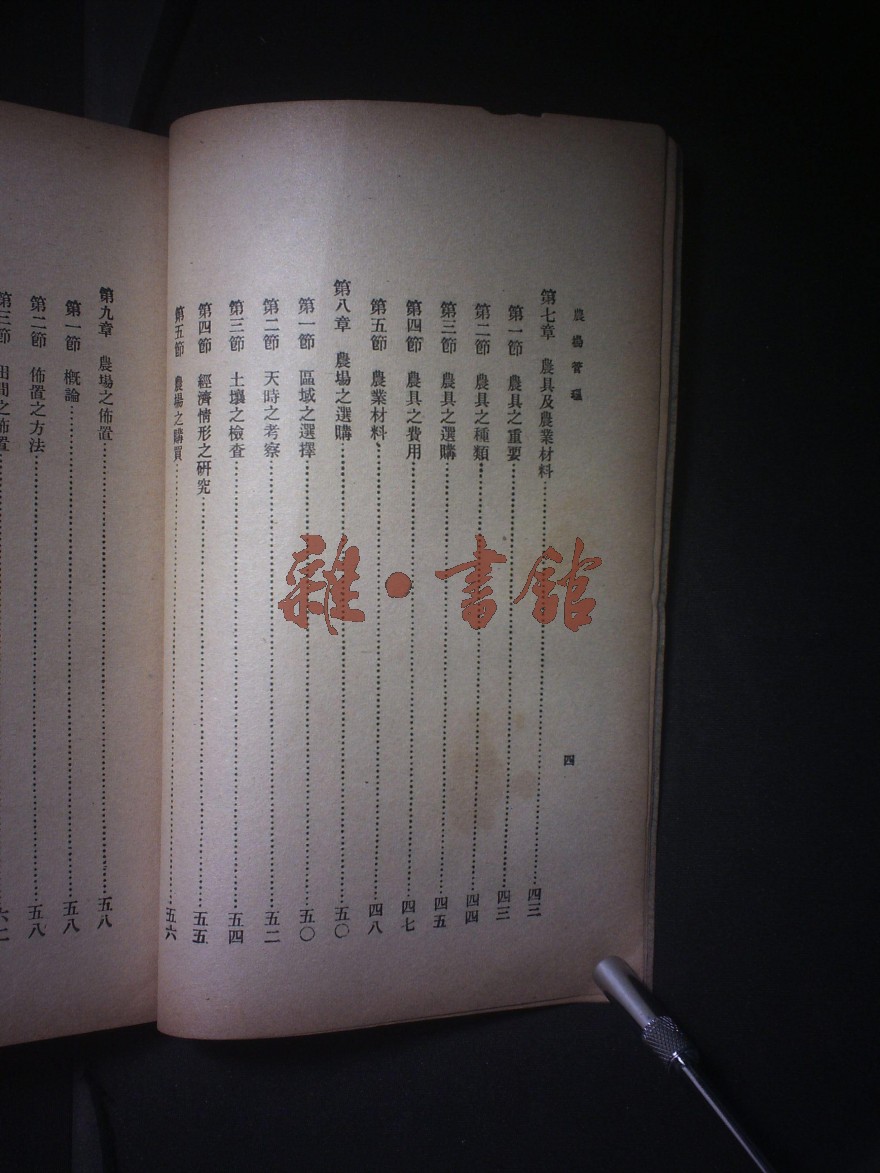 農場管理
四
第七章 農具及農業材料……四三
第一節 農具之重要……四三
第二節 農具之種類……四四
第三節 農具之選購……四五
第四節 農具之費用……四七
第五節 農業材料……四八
第八章 農場之選購……五〇
第一節 區域之選擇……五〇
第二節 天時之考察……五二
第三節 土壤之檢查……五四
第四節 經濟情形之研究……五五
第五節 農場之購買……五六
第九章 農場之佈置……五八
第一節 概論……五八
第二節 佈置之方法……五八
第三節 田間之佈置……六二
雜·書館